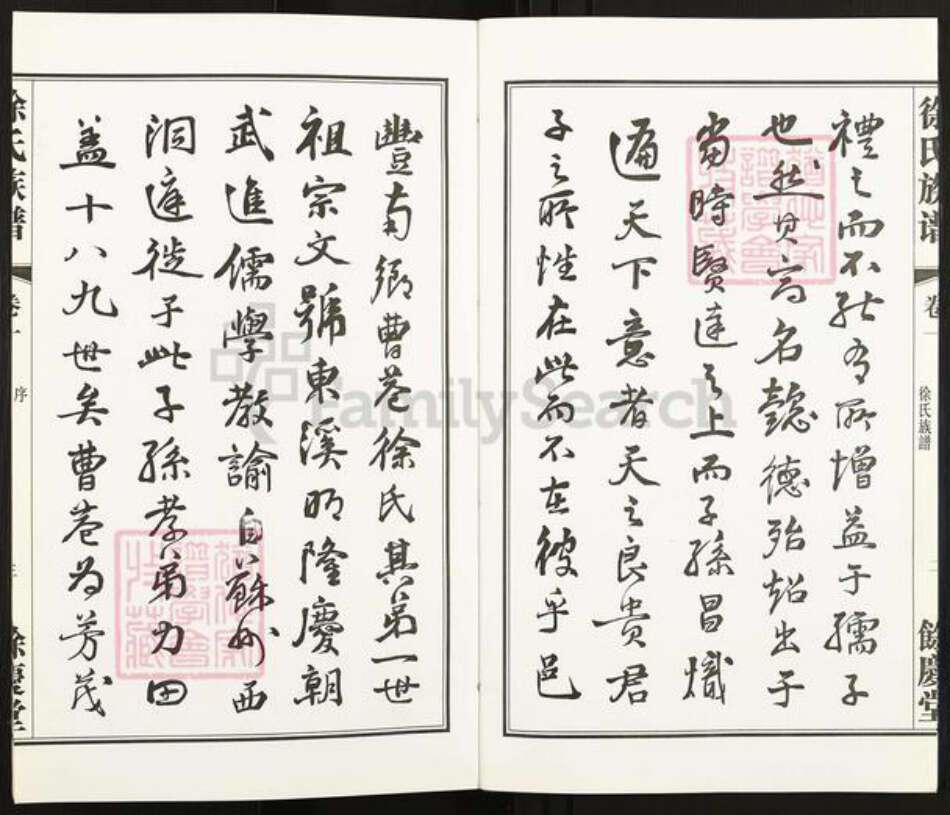 徐氏族譜
卷一
徐氏族譜
二
餘慶堂
禮之而不能有所增益于孺子
也然其高名懿德殆超出于
當時賢達之上而子孫昌熾
遍天下意者天之良貴君
子之所性在此而不在彼乎邑
豐南鄉曹巷徐氏其弟一世
祖宗文號東溪明隆慶朝
武進儒學教諭自蘇州西
洞庭徙于此子孫孝弟力田
盖十八九世矣曹巷为芳茂
徐氏族譜
卷一
序
三
餘慶堂
FamilySearch